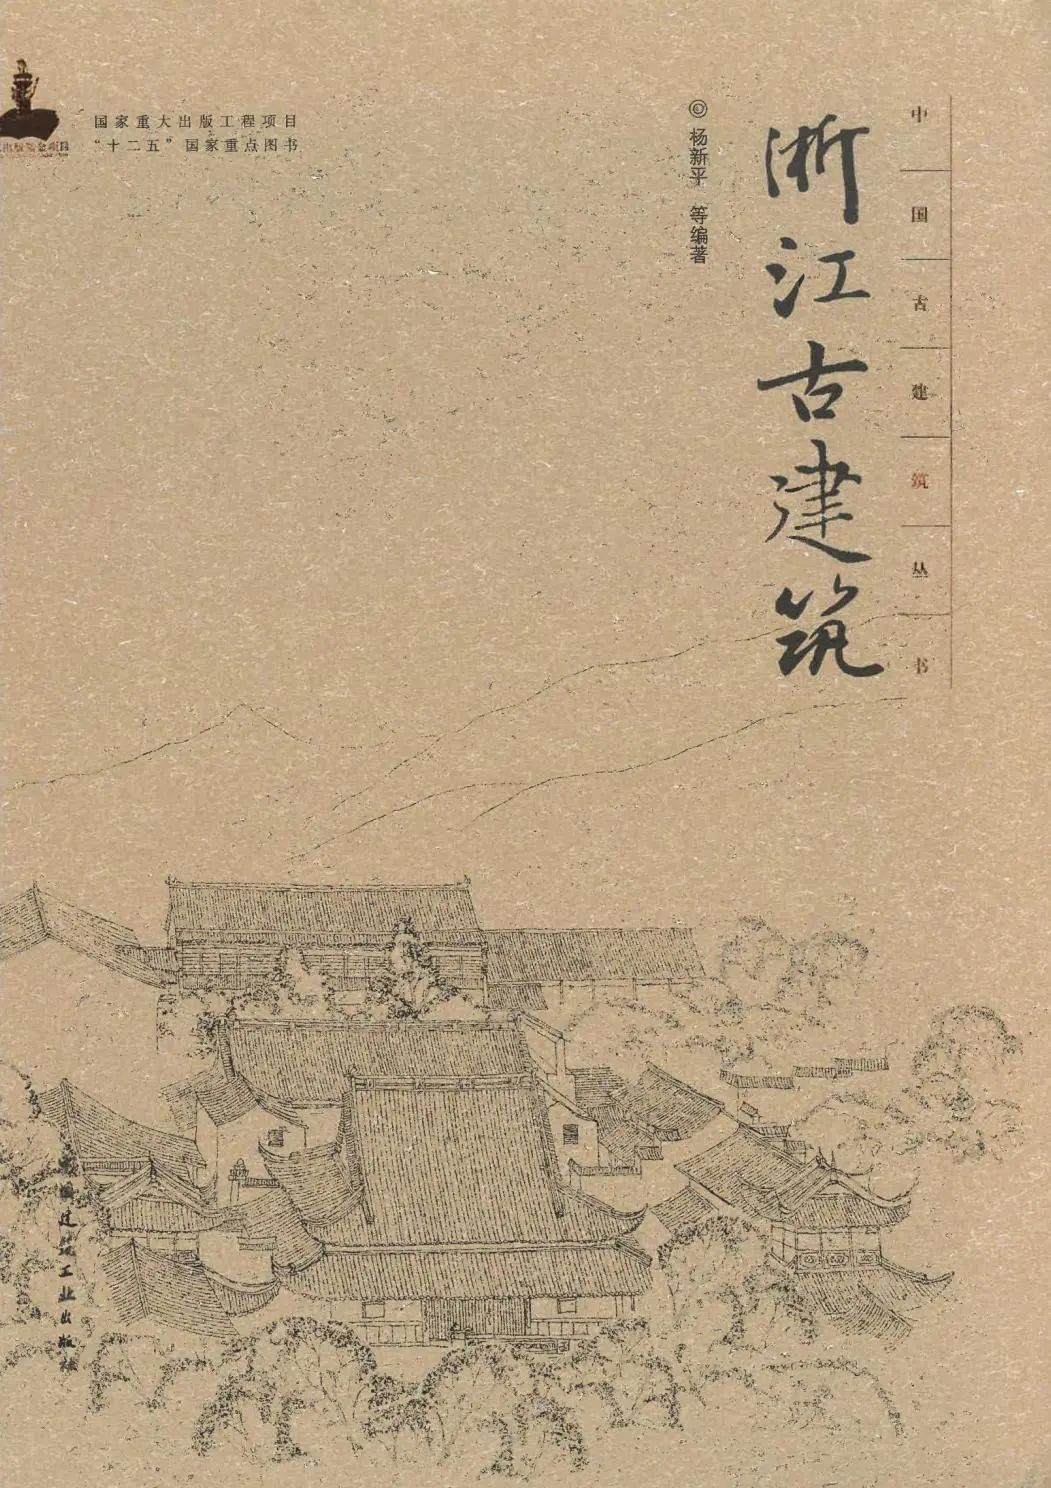 国家重大出版工程项目
“十二五”国家重点图书
出版基金项目
中国古建筑丛书
浙江古建筑
◎杨新平 等编著
中国建筑工业出版社